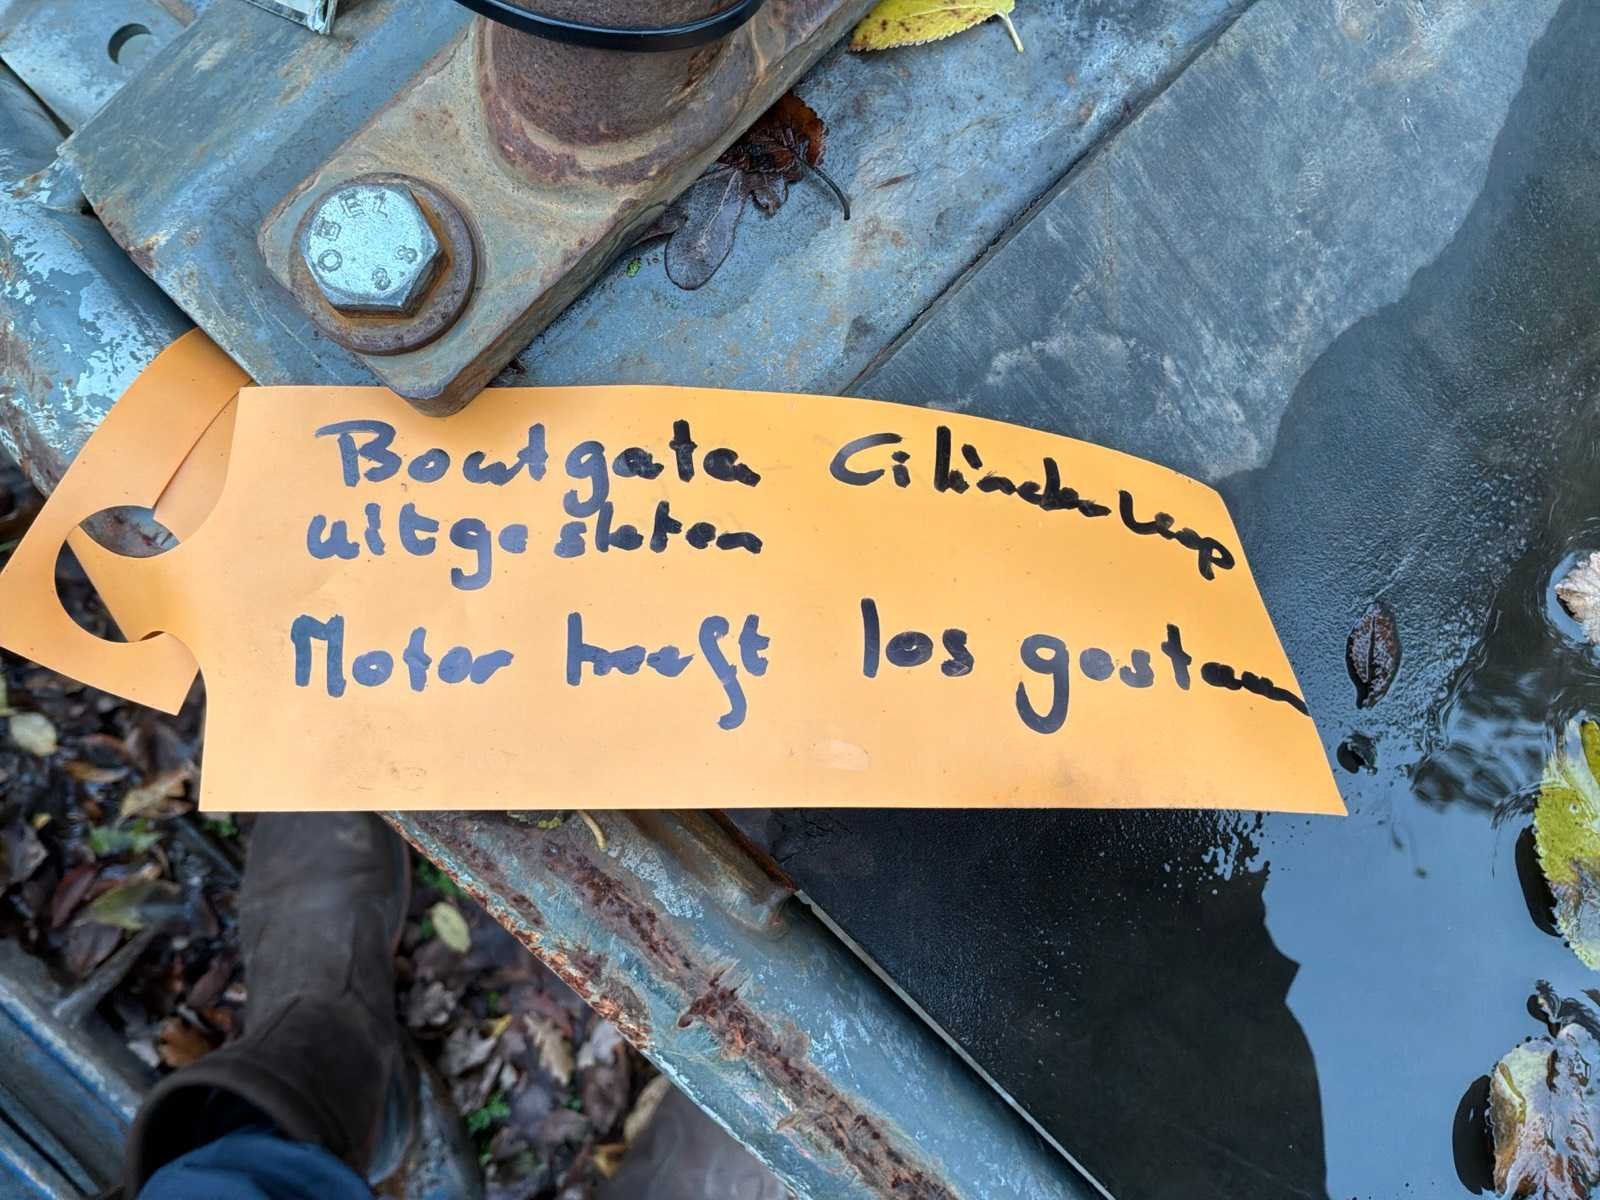 OBEZ
8.8
Boutgata Cilinderkop
uitgesleten
Motor heeft los gestaan